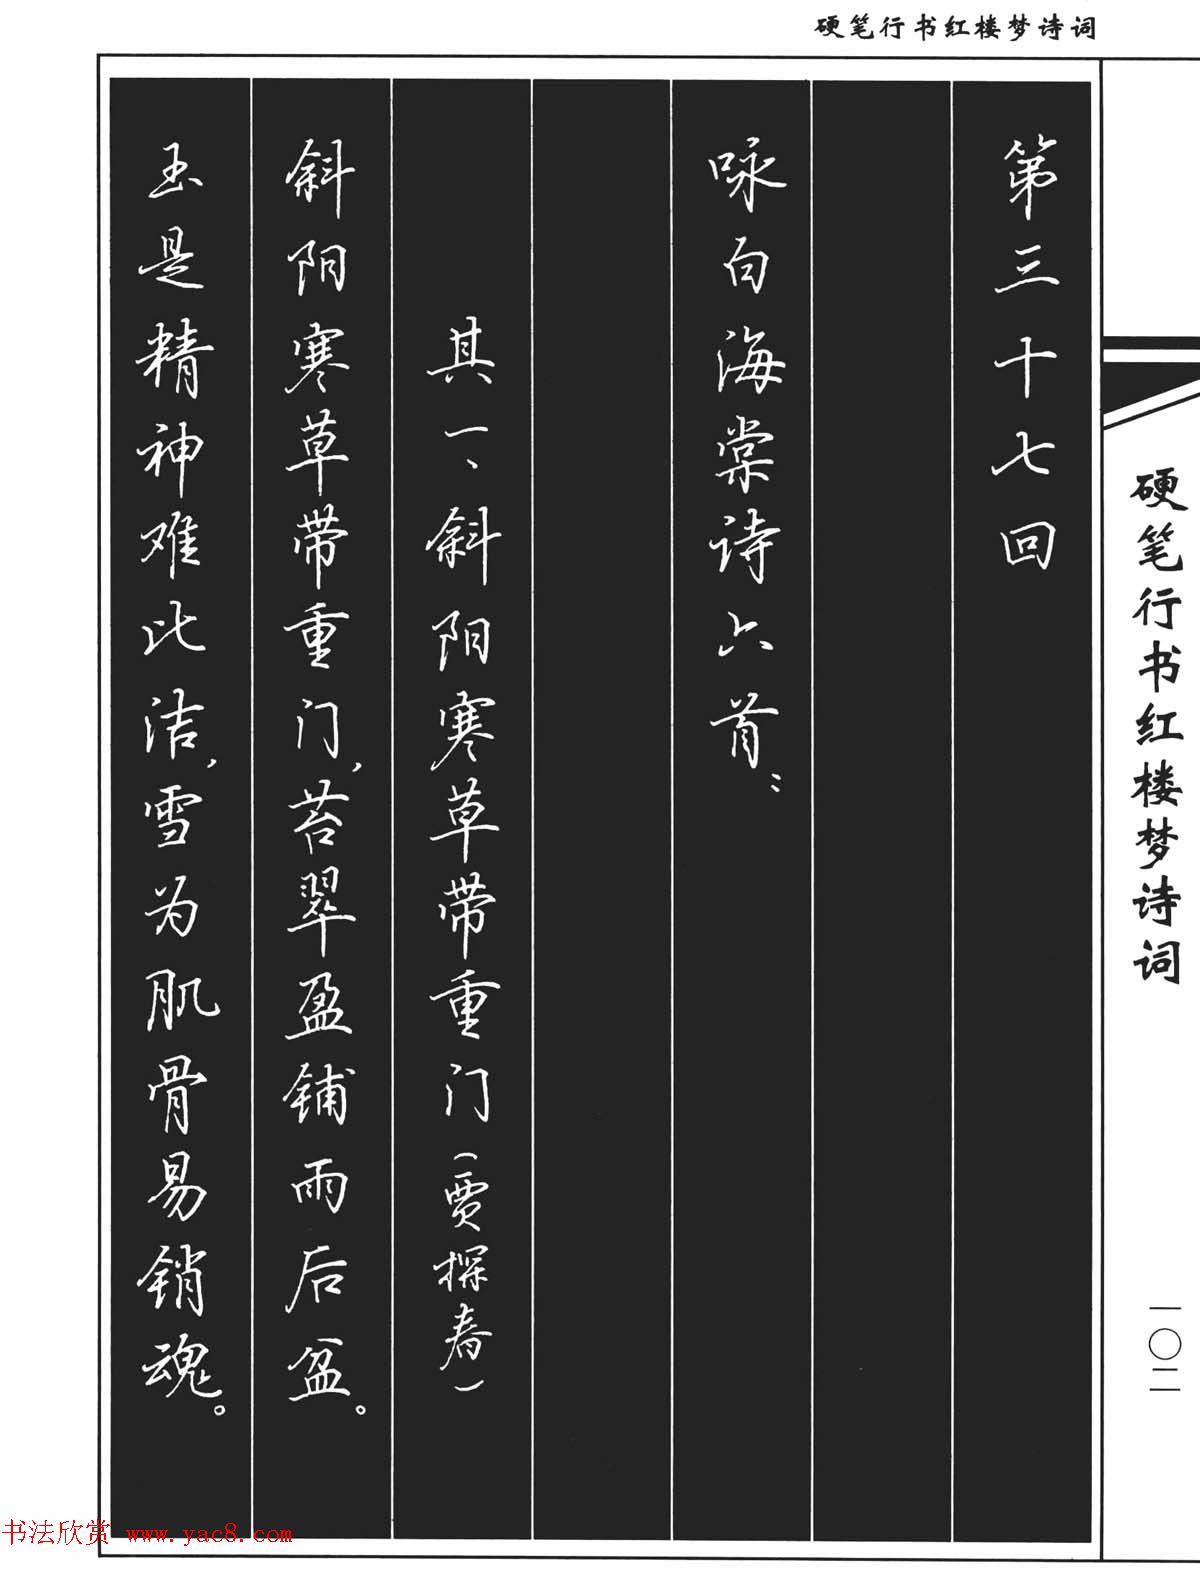 硬笔行书红楼梦诗词
硬笔行书红楼梦诗词
一〇二
第三十七回
咏白海棠诗六首：
其一、斜阳寒草带重门（贾探春）
斜阳寒草带重门，苔翠盈铺雨后盆。
玉是精神难比洁，雪为肌骨易销魂。
书法欣赏 www.yac8.com